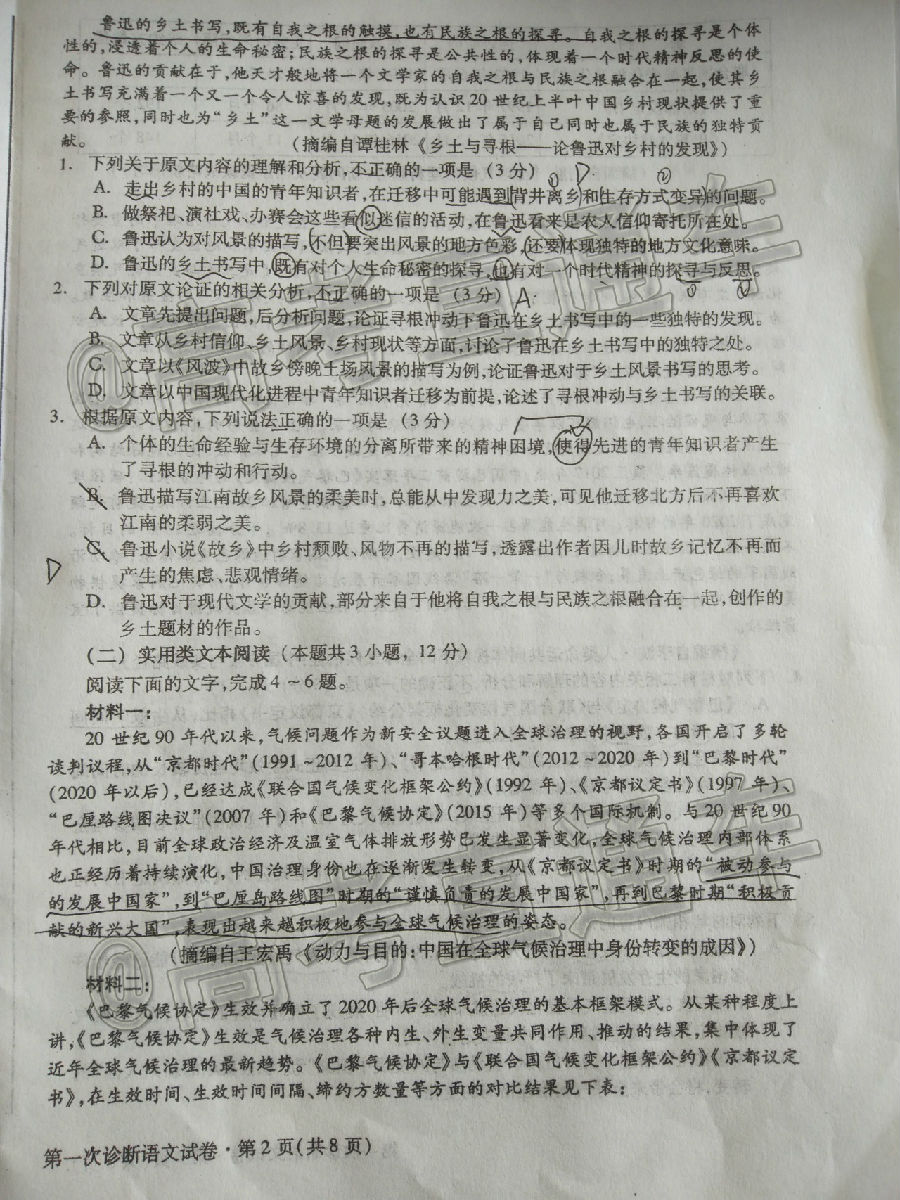 鲁迅的乡土书写,既有自我之根的触摸,也有民族之根的探寻。自我之根的探寻是个体
性的,浸透着个人的生命秘密;民族之根的探寻是公共性的,体现着一个时代精神反思的使
命。鲁迅的贡献在于,他天才般地将一个文学家的自我之根与民族之根融合在一起,使其乡
土书写充满着一个又一个令人惊喜的发现,既为认识20世纪上半叶中国乡村现状提供了重
要的参照,同时也为“乡土”这一文学母题的发展做出了属于自己同时也属于民族的独特贡
献。 (摘编自谭桂林《乡土与寻根——论鲁迅对乡村的发现》)
1. 下列关于原文内容的理解和分析,不正确的一项是(3分) D
① ②
A. 走出乡村的中国的青年知识者,在迁移中可能遇到背井离乡和生存方式变异的问题。
B. 做祭祀、演社戏、办赛会这些看似迷信的活动,在鲁迅看来是农人信仰寄托所在处。
C. 鲁迅认为对风景的描写,不但要突出风景的地方色彩,还要体现独特的地方文化意味。
D. 鲁迅的乡土书写中,既有对个人生命秘密的探寻,也有对一个时代精神的探寻与反思。
① ②
2. 下列对原文论证的相关分析,不正确的一项是(3分) A
A. 文章先提出问题,后分析问题,论证寻根冲动下鲁迅在乡土书写中的一些独特的发现。
B. 文章从乡村信仰、乡土风景、乡村现状等方面,讨论了鲁迅在乡土书写中的独特之处。
C. 文章以《风波》中故乡傍晚土场风景的描写为例,论证鲁迅对于乡土风景书写的思考。
D. 文章以中国现代化进程中青年知识者迁移为前提,论述了寻根冲动与乡土书写的关联。
3. 根据原文内容,下列说法正确的一项是(3分)
A. 个体的生命经验与生存环境的分离所带来的精神困境,使得先进的青年知识者产生
了寻根的冲动和行动。
B. 鲁迅描写江南故乡风景的柔美时,总能从中发现力之美,可见他迁移北方后不再喜欢
江南的柔弱之美。
C. 鲁迅小说《故乡》中乡村颓败、风物不再的描写,透露出作者因儿时故乡记忆不再而
D
产生的焦虑、悲观情绪。
D. 鲁迅对于现代文学的贡献,部分来自于他将自我之根与民族之根融合在一起,创作的
乡土题材的作品。
(二)实用类文本阅读(本题共3小题,12分)
阅读下面的文字,完成4~6题。
材料一:
20世纪90年代以来,气候问题作为新安全议题进入全球治理的视野,各国开启了多轮
谈判议程,从“京都时代”(1991~2012年)、“哥本哈根时代”(2012~2020年)到“巴黎时代”
(2020年以后),已经达成《联合国气候变化框架公约》(1992年)、《京都议定书》(1997年)、
“巴厘路线图决议”(2007年)和《巴黎气候协定》(2015年)等多个国际机制。与20世纪90
年代相比,目前全球政治经济及温室气体排放形势已发生显著变化,全球气候治理内部体系
也正经历着持续演化,中国治理身份也在逐渐发生转变,从《京都议定书》时期的“被动参与
的发展中国家”,到“巴厘岛路线图”时期的“谨慎负责的发展中国家”,再到巴黎时期“积极贡
献的新兴大国”,表现出越来越积极地参与全球气候治理的姿态。
(摘编自王宏禹《动力与目的:中国在全球气候治理中身份转变的成因》)
材料二:
《巴黎气候协定》生效并确立了2020年后全球气候治理的基本框架模式。从某种程度上
讲,《巴黎气候协定》生效是气候治理各种内生、外生变量共同作用、推动的结果,集中体现了
近年全球气候治理的最新趋势。《巴黎气候协定》与《联合国气候变化框架公约》《京都议定
书》,在生效时间、生效时间间隔、缔约方数量等方面的对比结果见下表:
第一次诊断语文试卷·第2页(共8页)
@高考直通车
@高考直通车